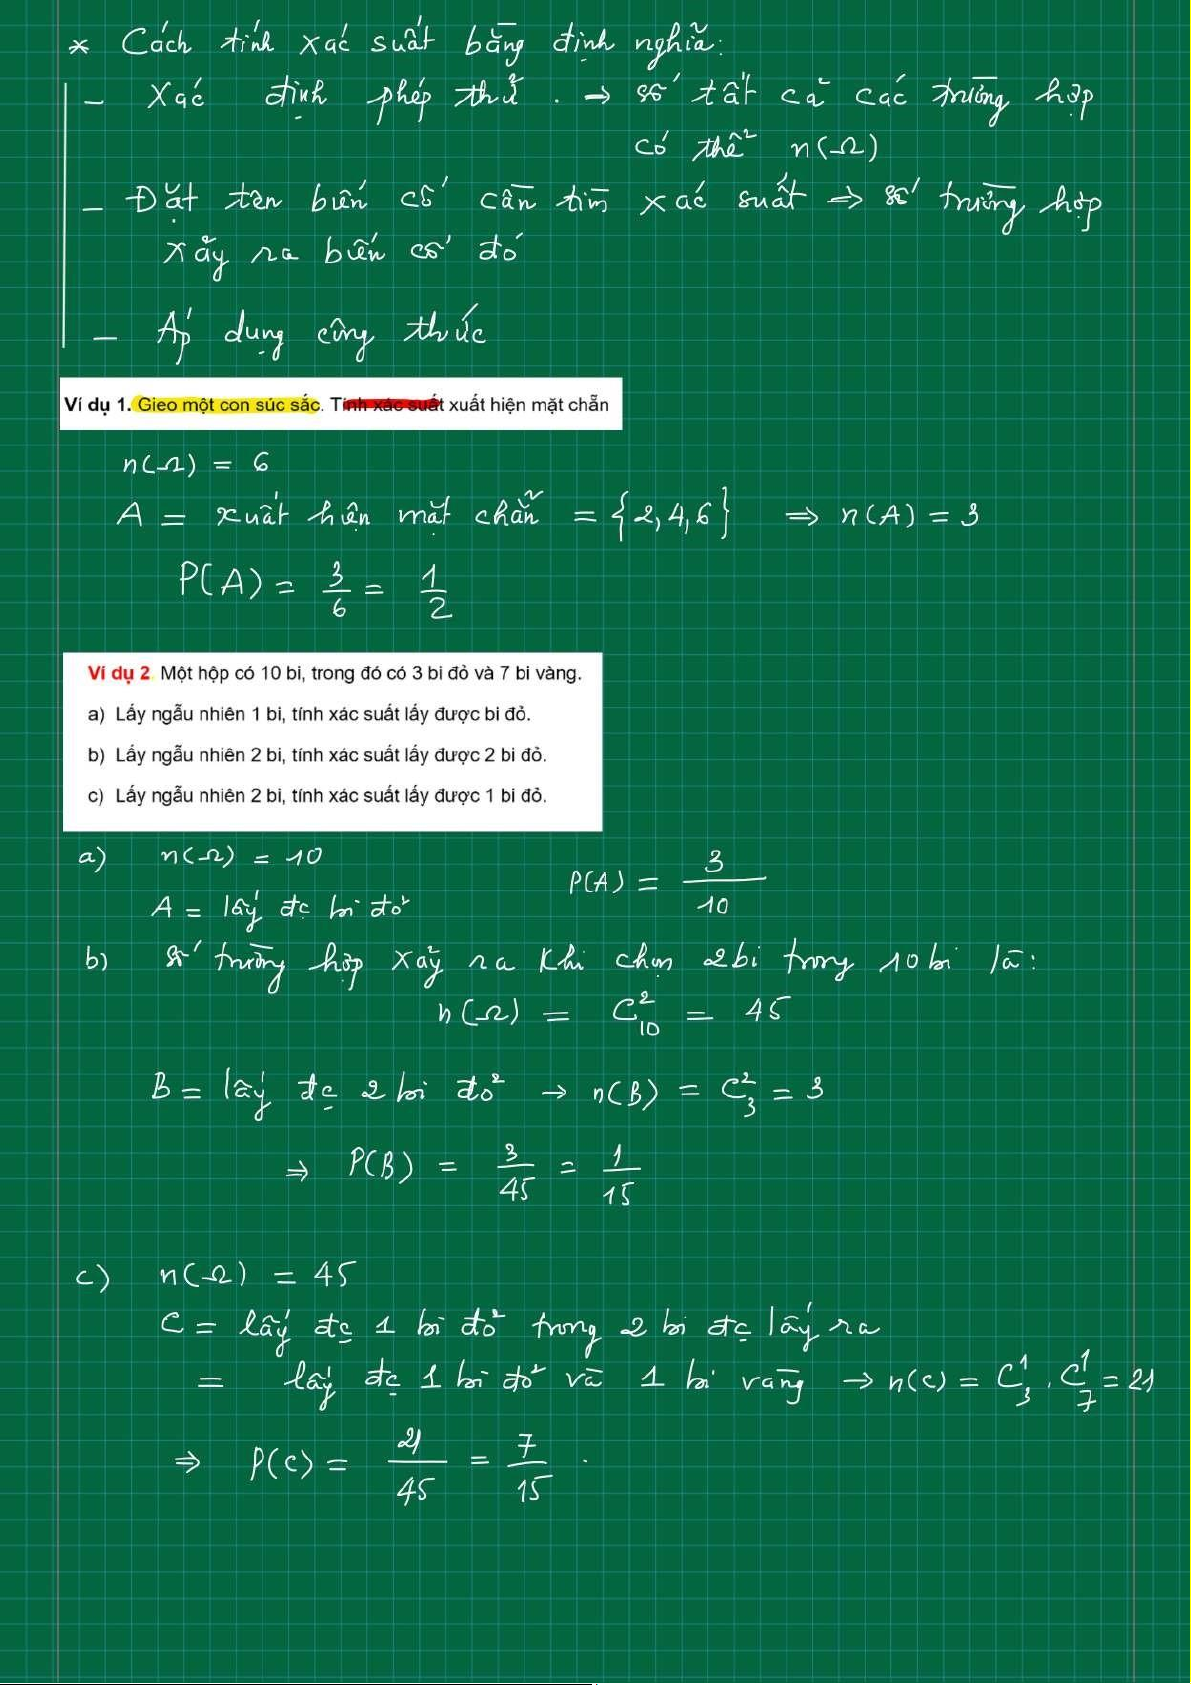 * Cách tính xác suất bằng định nghĩa:
- Xác định phép thử. → số tất cả các trường hợp
có thể n(Ω)
- Đặt tên biến cố cần tìm xác suất ⇒ số trường hợp
xảy ra biến cố đó
- Áp dụng công thức
Ví dụ 1. Gieo một con súc sắc. Tính xác suất xuất hiện mặt chẵn
n(Ω) = 6
A = xuất hiện mặt chẵn = {2,4,6} ⇒ n(A) = 3
P(A) = 3/6 = 1/2
Ví dụ 2. Một hộp có 10 bi, trong đó có 3 bi đỏ và 7 bi vàng.
a) Lấy ngẫu nhiên 1 bi, tính xác suất lấy được bi đỏ.
b) Lấy ngẫu nhiên 2 bi, tính xác suất lấy được 2 bi đỏ.
c) Lấy ngẫu nhiên 2 bi, tính xác suất lấy được 1 bi đỏ.
a) n(Ω) = 10
A = lấy đc bi đỏ P(A) = 3/10
b) số trường hợp xảy ra khi chọn 2 bi trong 10 bi là:
n(Ω) = C²₁₀ = 45
B = lấy đc 2 bi đỏ → n(B) = C²₃ = 3
⇒ P(B) = 3/45 = 1/15
c) n(Ω) = 45
C = lấy đc 1 bi đỏ trong 2 bi đc lấy ra
= lấy đc 1 bi đỏ và 1 bi vàng → n(C) = C¹₃ . C¹₇ = 21
⇒ P(C) = 21/45 = 7/15.